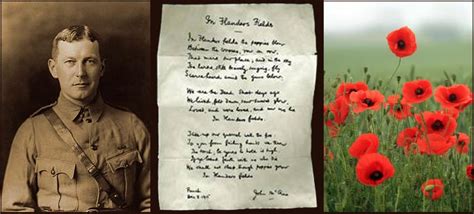 In Flanders Fields
In Flanders fields the poppies blow
Between the crosses, row on row,
That mark our place; and in the sky
The larks, still bravely singing, fly
Scarce heard amid the guns below.
We are the Dead. Short days ago
We lived, felt dawn, saw sunset glow,
Loved, and were loved, and now we lie
In Flanders fields.
Take up our quarrel with the foe
To you from failing hands we throw
The torch; be yours to hold it high
If ye break faith with us who die
We shall not sleep though poppies grow
In Flanders fields
Punch
Dec 8 1915 John McCrae